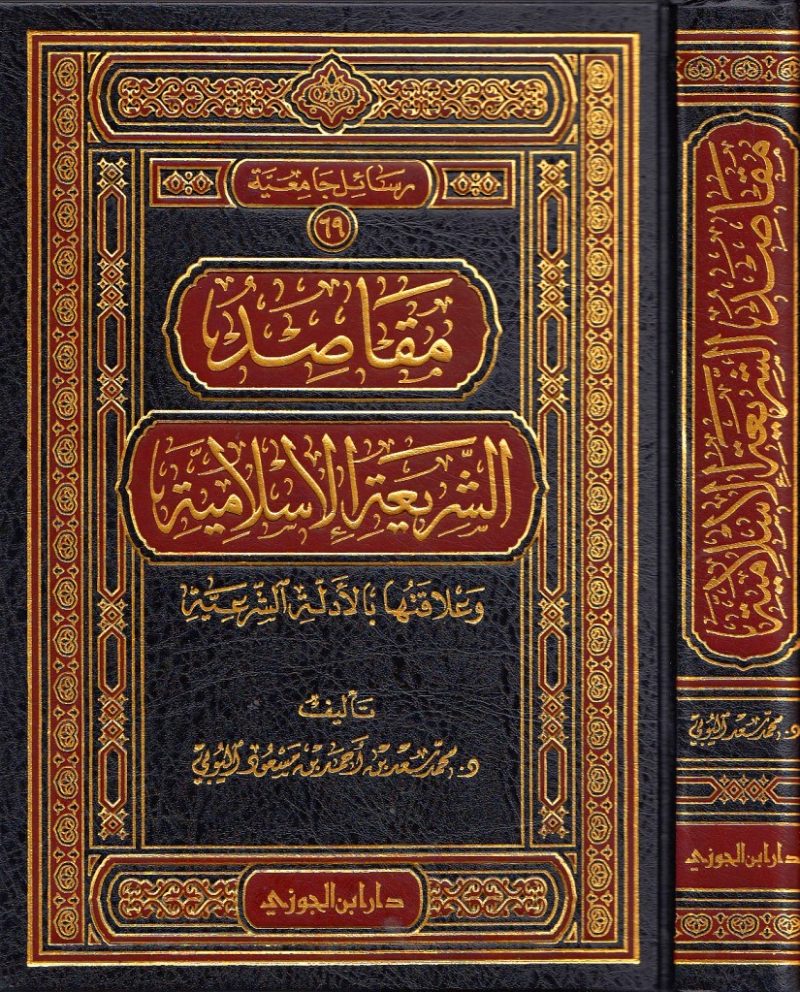 رسائل جامعية
٦٩
مقاصد
الشريعة الإسلامية
وعلاقتها بالأدلة الشرعية
تأليف
د. محمد سعد بن أحمد بن مسعود اليوبي
دار ابن الجوزي
مقاصد الشريعة الإسلامية
د. محمد سعد اليوبي
دار ابن الجوزي